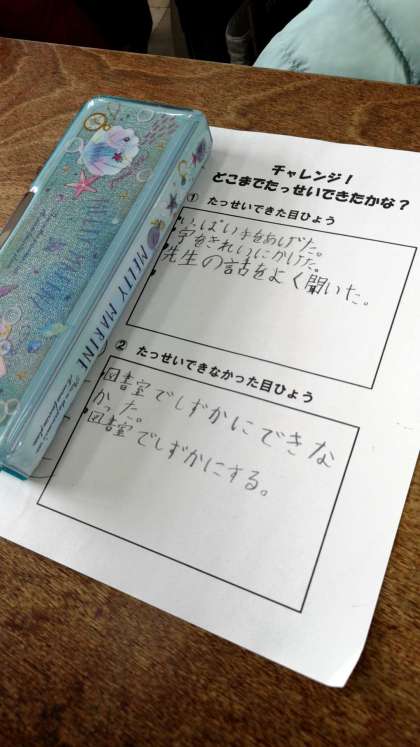 チャレンジ!
どこまでたっせいできたかな?
① たっせいできた目ひょう
・いっぱい手をあげた。
・字をきれいにかけた。
・先生の話をよく聞いた。
② たっせいできなかった目ひょう
・図書室でしずかにできな
かった。
・図書室でしずかにする。
MILLY MARINE